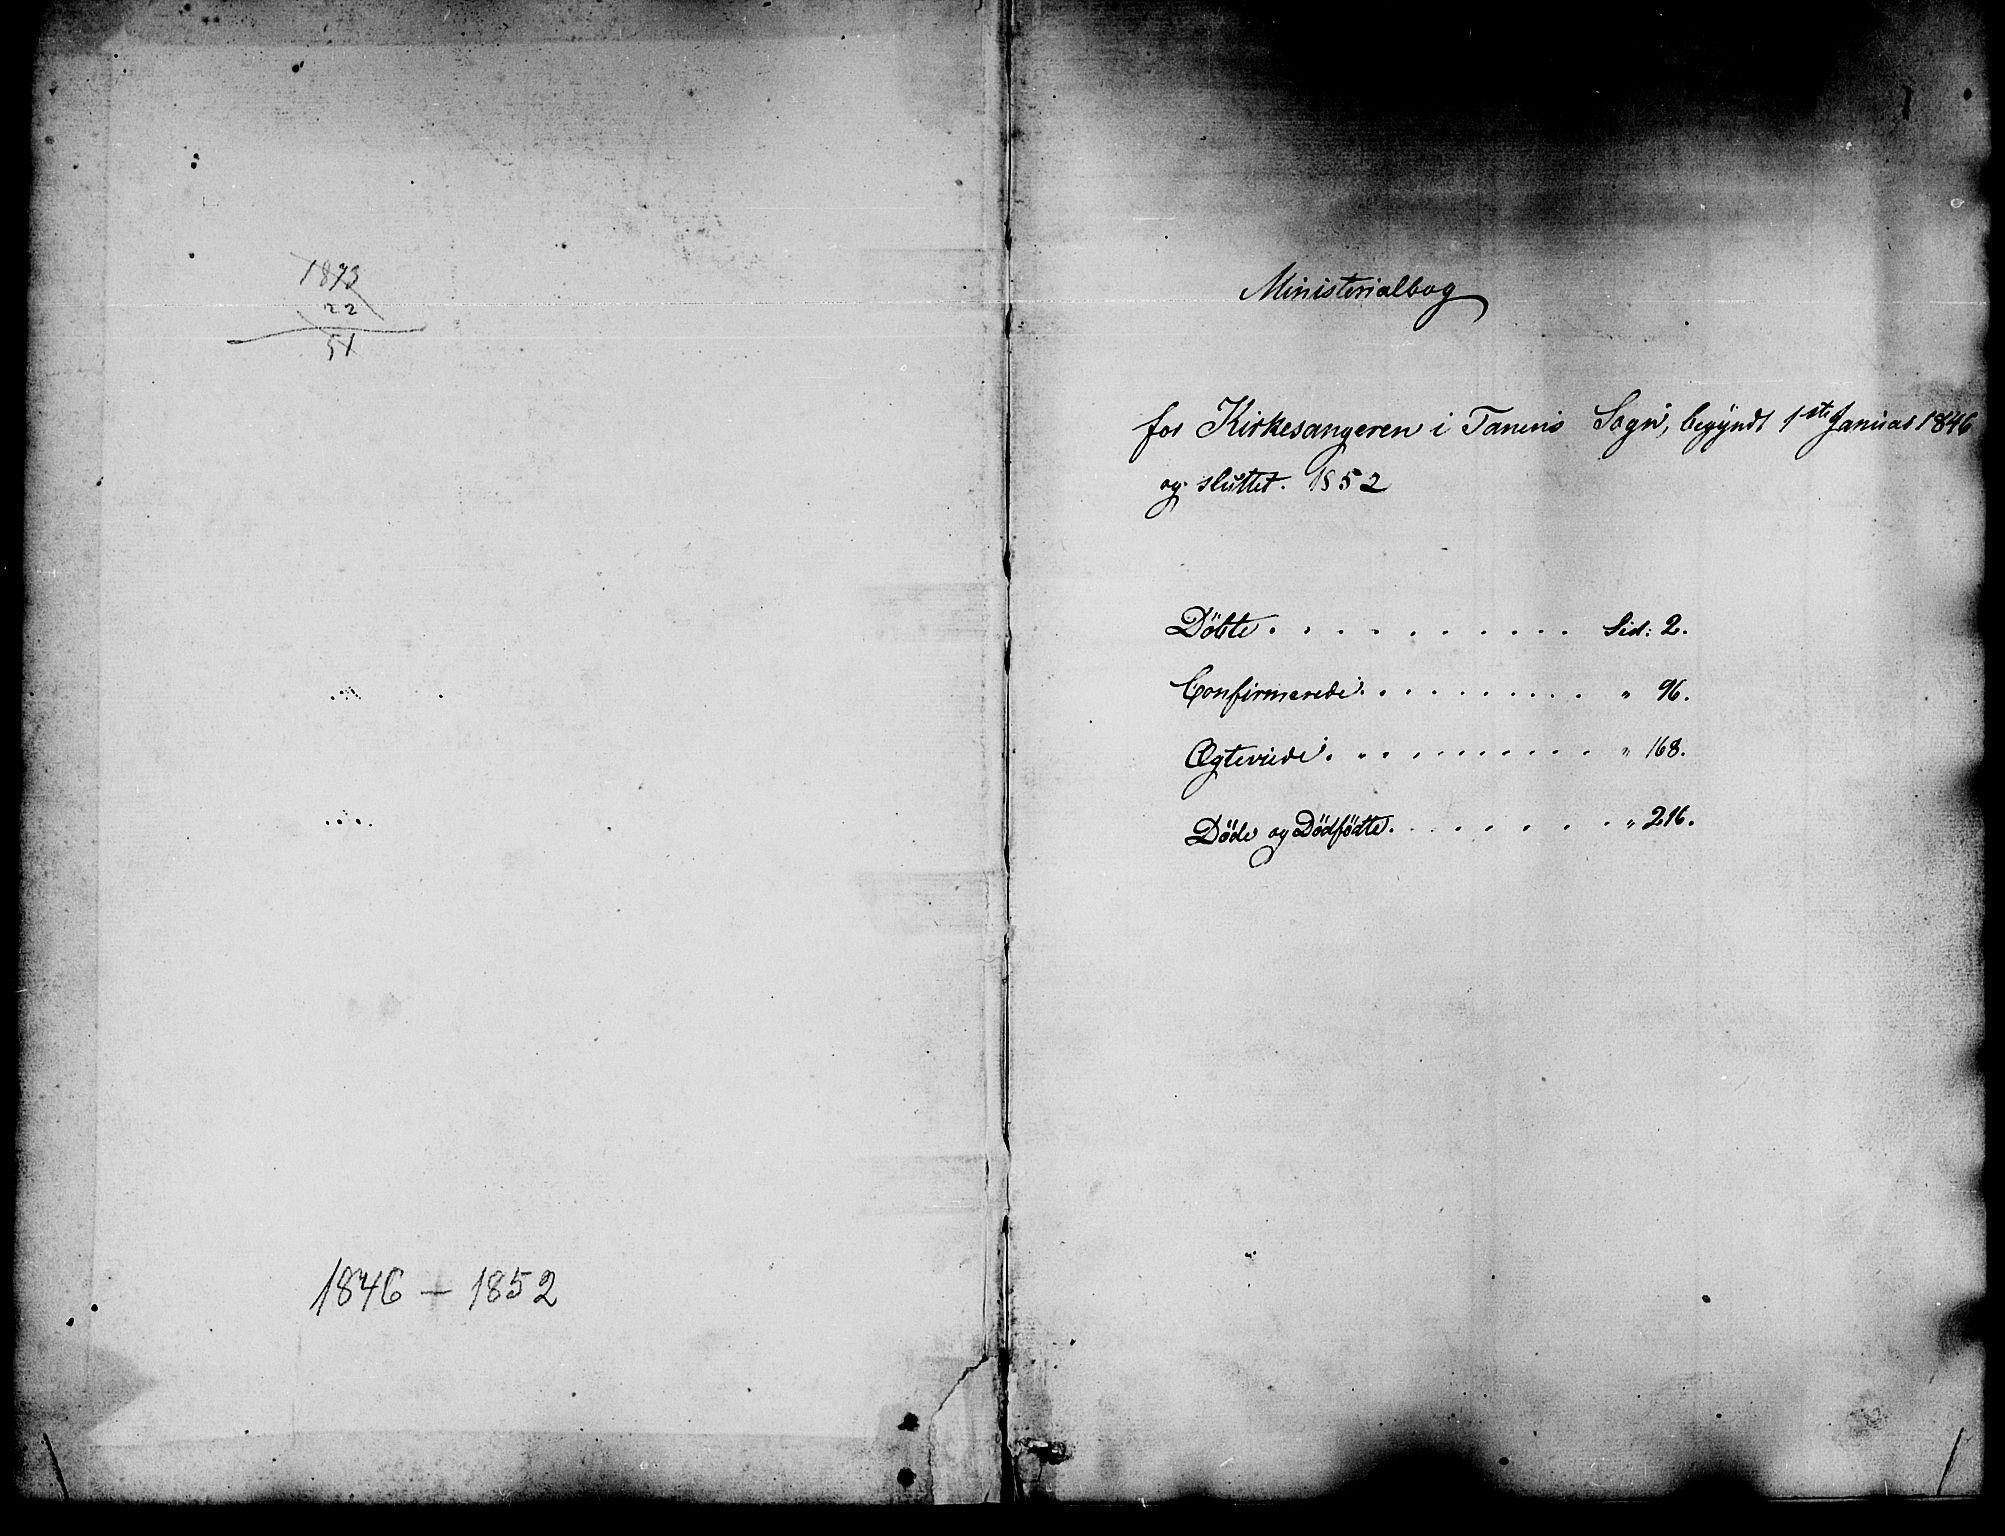 1873
22
51
1846 — 1852
Ministerialbog
for Kirkesangeren i Tanens Sogn, begyndt 1ste Januar 1846
og sluttet. 1852
Döbte . . . . . . . . . . Sid: 2.
Confirmerede . . . . . . . . . " 96.
Ægteviede . . . . . . . . . " 168.
Döde og Dödfödte . . . . . . . " 216.